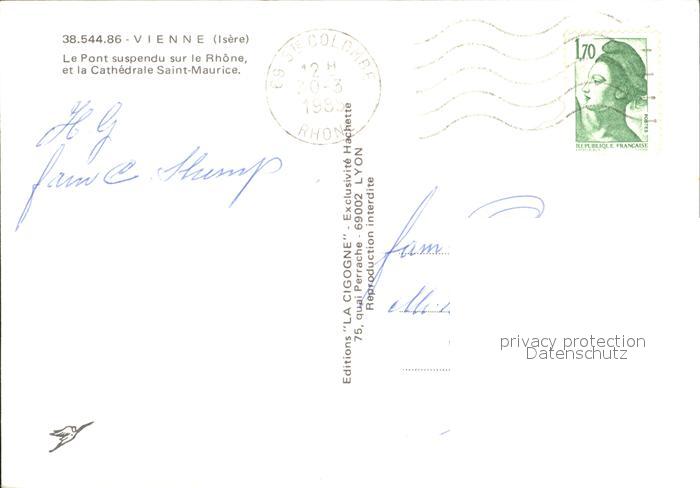 38.544.86 - VIENNE (Isère)
Le Pont suspendu sur le Rhône,
et la Cathédrale Saint-Maurice.
69 Ste COLOMBE
12 H
20-3
RHONE
1,70
POSTES
REPUBLIQUE FRANCAISE
H G
fam C. Stump
Editions "LA CIGOGNE" - Exclusivité Hachette
75, quai Perrache - 69002 LYON
Reproduction interdite
fam.
privacy protection
Datenschutz